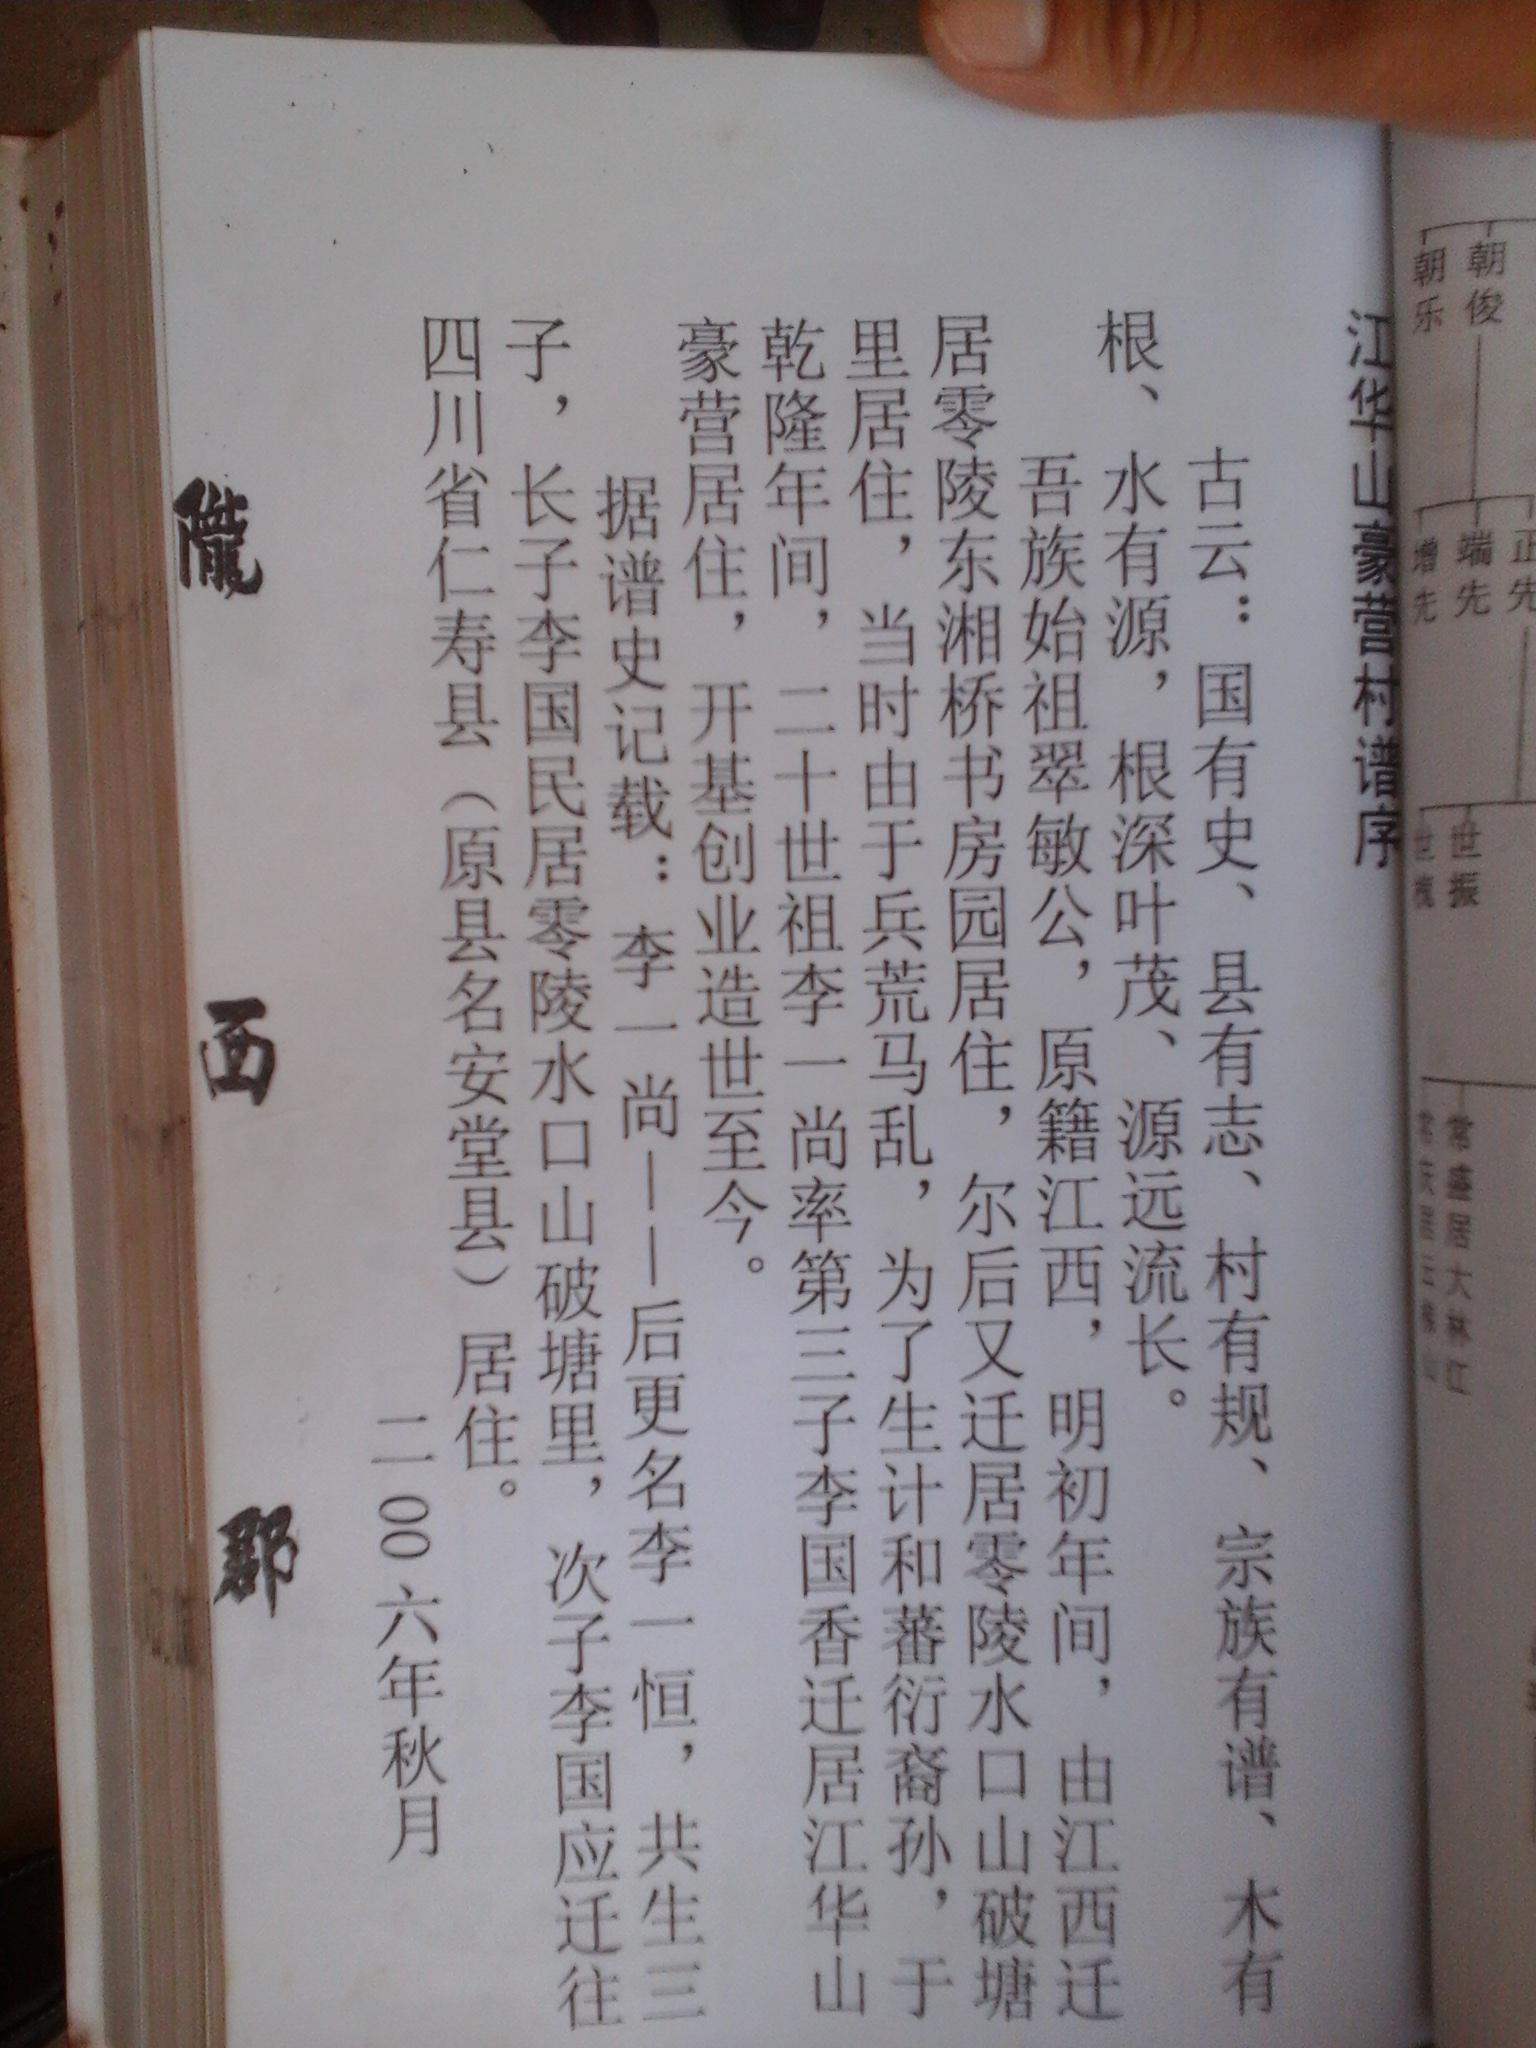 江华山豪营村谱序
古云：国有史、县有志、村有规、宗族有谱、木有
根、水有源，根深叶茂、源远流长。
吾族始祖翠敏公，原籍江西，明初年间，由江西迁
居零陵东湘桥书房园居住，尔后又迁居零陵水口山破塘
里居住，当时由于兵荒马乱，为了生计和蕃衍裔孙，于
乾隆年间，二十世祖李一尚率第三子李国香迁居江华山
豪营居住，开基创业造世至今。
据谱史记载：李一尚——后更名李一恒，共生三
子，长子李国民居零陵水口山破塘里，次子李国应迁往
四川省仁寿县（原县名安堂县）居住。
二00六年秋月
隴西郡
朝俊
朝乐
正先
端先
增先
世振
常盛居大林江